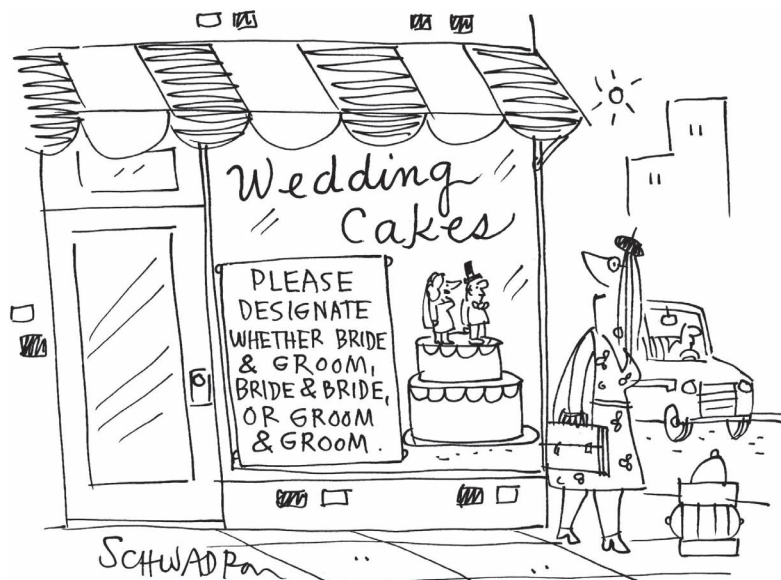 Wedding
Cakes
PLEASE
DESIGNATE
WHETHER BRIDE
& GROOM,
BRIDE & BRIDE,
OR GROOM
& GROOM.
SCHWADRON